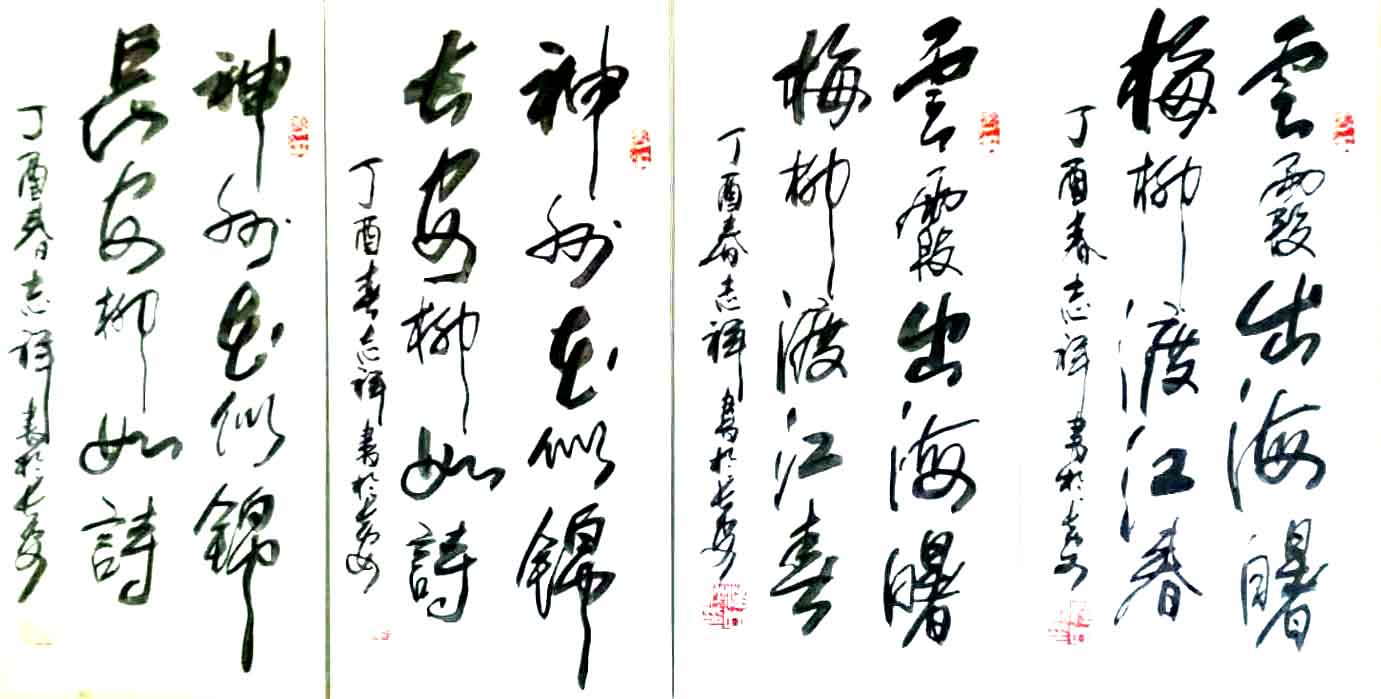 雲霞出海曙
梅柳渡江春
丁酉春志祥書於长安
雲霞出海曙
梅柳渡江春
丁酉春志祥書於长安
神州花似錦
长安柳如詩
丁酉春志祥書於长安
神州花似錦
長安柳如詩
丁酉春志祥書於长安